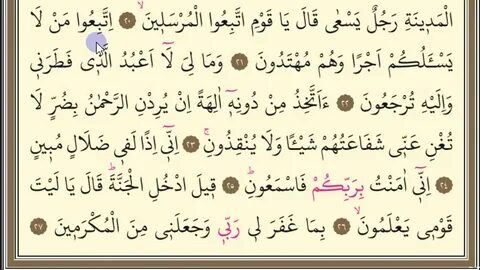 الْمَدٖينَةِ رَجُلٌ يَسْعٰى قَالَ يَا قَوْمِ اتَّبِعُوا الْمُرْسَلٖينَۙ ﴿٢٠﴾ اِتَّبِعُوا مَنْ لَا
يَسْـَٔلُكُمْ اَجْرًا وَهُمْ مُهْتَدُونَ ﴿٢١﴾ وَمَا لِيَ لَٓا اَعْبُدُ الَّذٖي فَطَرَنٖي
وَاِلَيْهِ تُرْجَعُونَ ﴿٢٢﴾ ءَاَتَّخِذُ مِنْ دُونِهٖٓ اٰلِهَةً اِنْ يُرِدْنِ الرَّحْمٰنُ بِضُرٍّ لَا
تُغْنِ عَنّٖي شَفَاعَتُهُمْ شَيْـًٔا وَلَا يُنْقِذُونِۚ ﴿٢٣﴾ اِنّٖٓي اِذًا لَفٖي ضَلَالٍ مُبٖينٍ
﴿٢٤﴾ اِنّٖٓي اٰمَنْتُ بِرَبِّكُمْ فَاسْمَعُونِؕ ﴿٢٥﴾ قٖيلَ ادْخُلِ الْجَنَّةَؕ قَالَ يَا لَيْتَ
قَوْمٖي يَعْلَمُونَۙ ﴿٢٦﴾ بِمَا غَفَرَ لٖي رَبّٖي وَجَعَلَنٖي مِنَ الْمُكْرَمٖينَ ﴿٢٧﴾